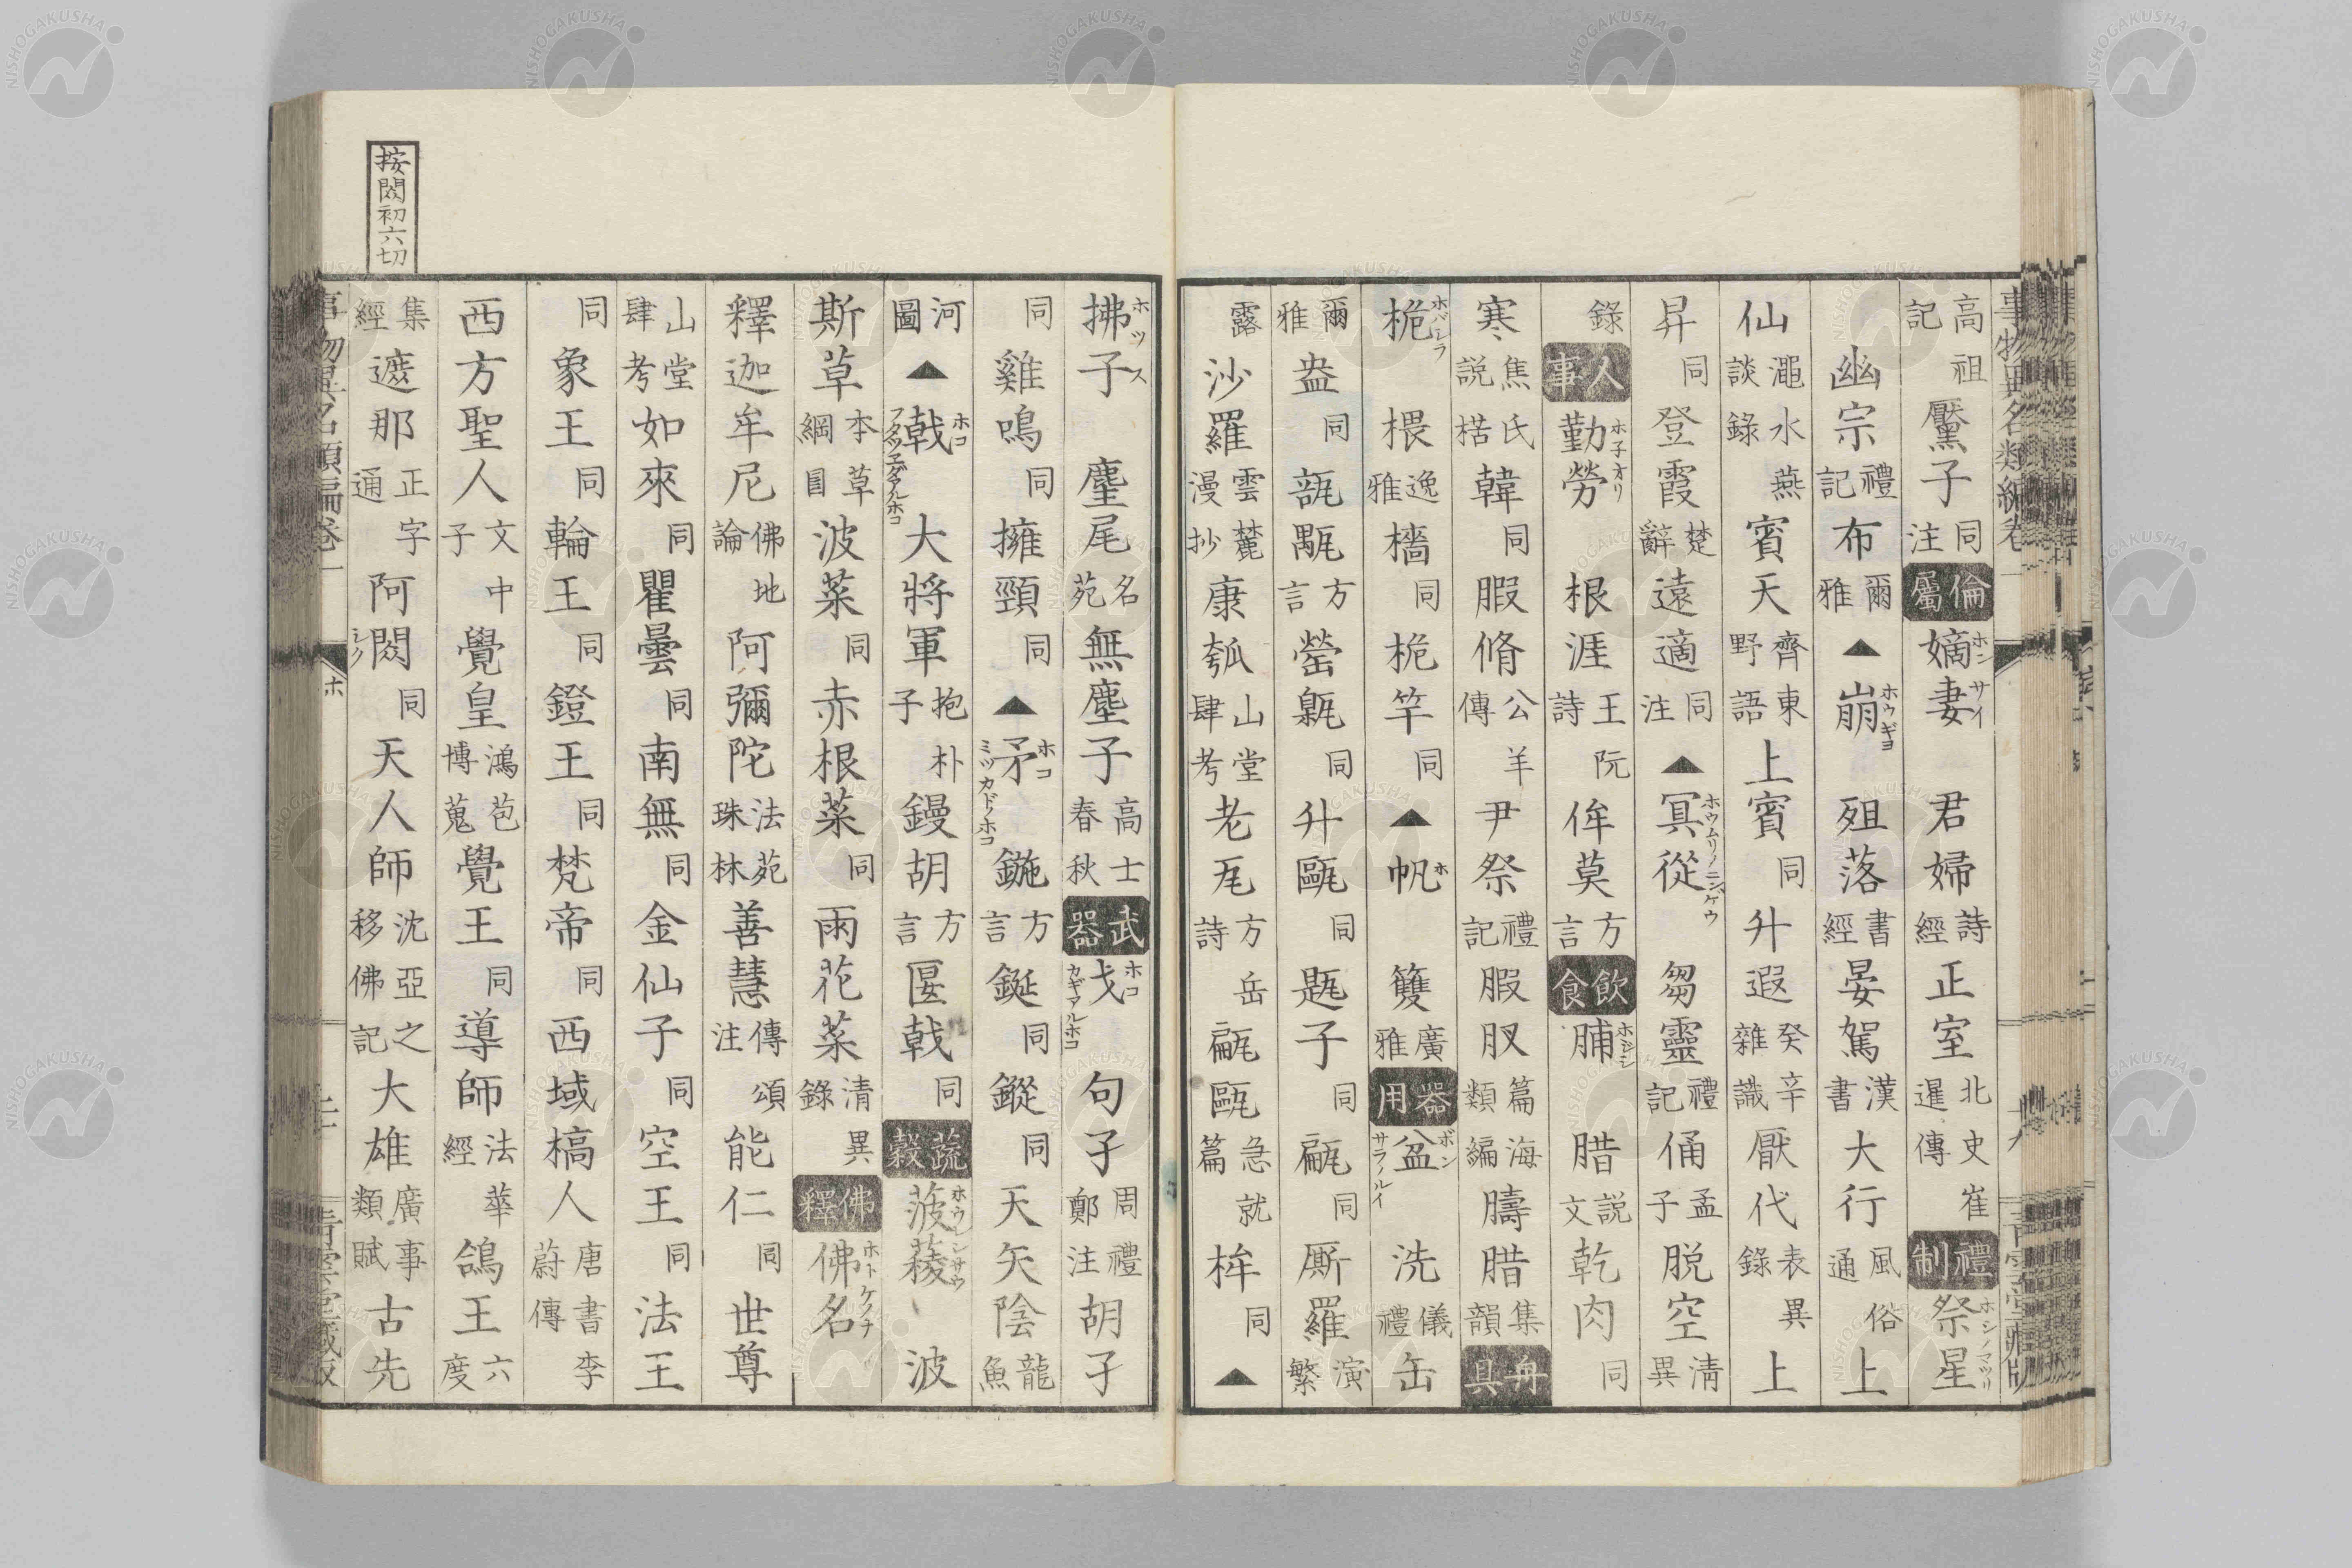 事物異名類編卷一
高祖記 黶子 同注 倫屬 嫡妻ホンサイ 君婦 詩經 正室 北史崔暹傳 禮制 祭星ホシノマツリ
幽宗 禮記 布 爾雅 ▲崩ホウギヨ 殂落 書經 晏駕 漢書 大行 風俗通 上
仙 澠水燕談錄 賓天 齊東野語 上賓 同 升遐 癸辛雜識 厭代 表異錄 上
昇 同 登霞 楚辭 遠適 同注 ▲冥從ホウムリノニンゲウ 芻靈 禮記 俑 孟子 脱空 清異
錄 人事 勤勞ホ子オリ 根涯 王阮詩 侔莫 方言 飲食 脯ホシシ 腊 説文 乾肉 同
寒 焦氏説楛 韓 同 腶脩 公羊傳 尹祭 禮記 腶 篇海類編 臑腊 集韻 舟具
桅ホバシラ 椳 逸雅 檣 同 桅竿 同 ▲帆ホ 籆 廣雅 器用 盆ボン サラノルイ 洗 儀禮 缶
爾雅 盎 同 瓿 方言 罃 同 升甌 同 子 同 甂 同 厮羅 演繁
露 沙羅 雲麓漫抄 康瓠 山堂肆考 老瓦 方岳詩 甂甌 急就篇 桙 同 ▲
拂子ホツス 麈尾 名苑 無塵子 高士春秋 武器 戈ホコ カギアルホコ 句孑 周禮鄭注 胡孑
同 雞鳴 同 擁頸 同 ▲矛ホコ ミツカドノホコ 鍦 方言 鋋 同 鏦 同 天矢陰 龍魚
河圖 ▲戟ホコ フタツエダアルホコ 大將軍 抱朴子 鏝胡 方言 匽戟 同 蔬穀 菠薐ホウレンサウ 波
斯草 本草綱目 波菜 同 赤根菜 同 雨花菜 清異錄 佛釋 佛名ホトケノナ
釋迦牟尼 佛地論 阿彌陀 法苑珠林 善慧 傳頌注 能仁 同 世尊
山堂肆考 如來 同 瞿曇 同 南無 同 金仙子 同 空王 同 法王
同 象王 同 輪王 同 鐙王 同 梵帝 同 西域槁人 唐書李蔚傳
西方聖人 文中子 覺皇 鴻苞博蒐 覺王 同 導師 法華經 鴿王 六度
集經 遮那 正字通 阿閦シク 同 天人師 沈亞之移佛記 大雄 廣事類賦 古先
事物異名類編卷一 ホ 青雲堂藏版
按閦初六切